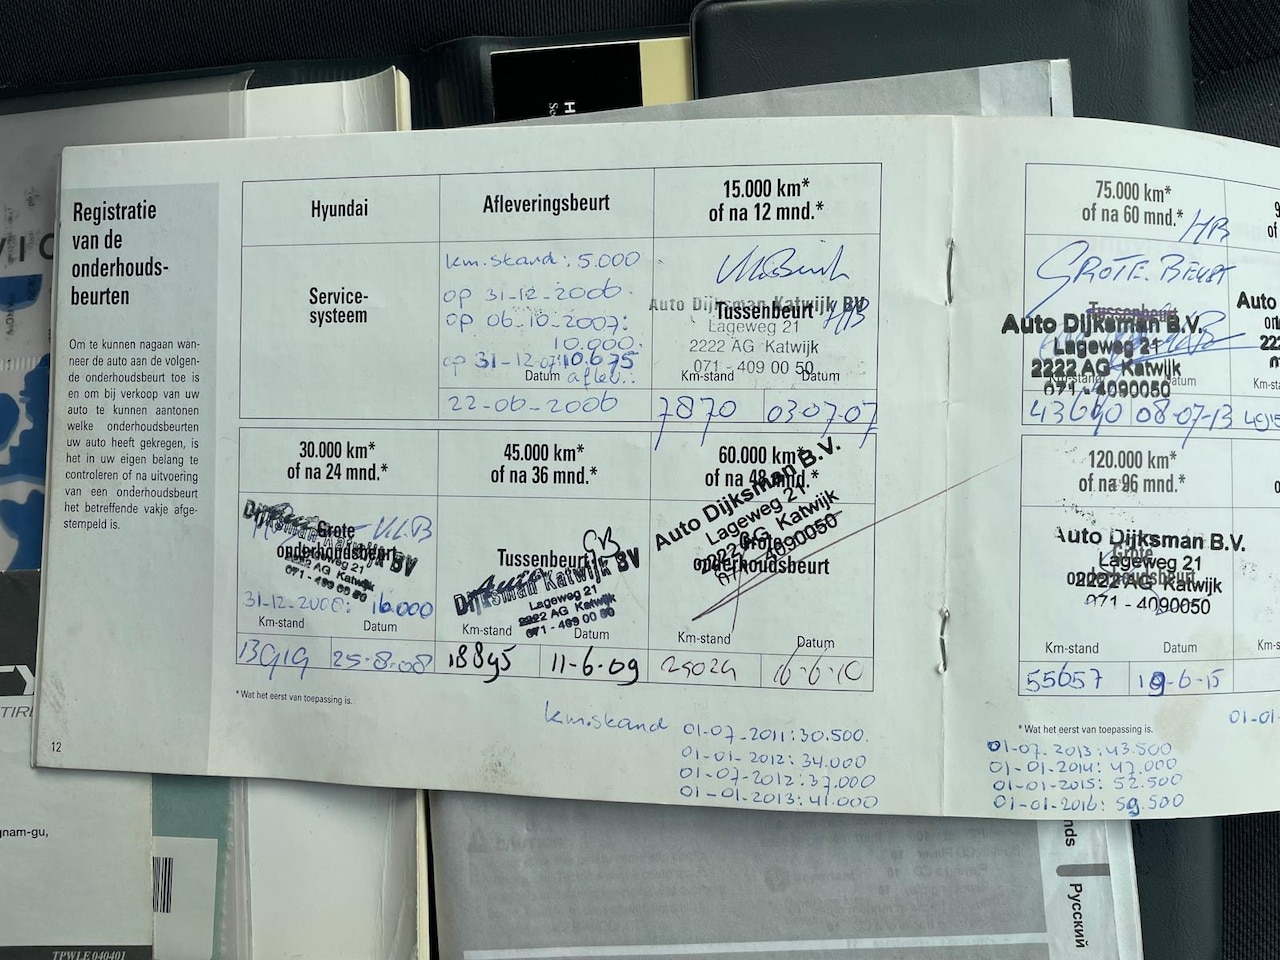 Registratie
van de
onderhouds-
beurten
Om te kunnen nagaan wan-
neer de auto aan de volgen-
de onderhoudsbeurt toe is
en om bij verkoop van uw
auto te kunnen aantonen
welke onderhoudsbeurten
uw auto heeft gekregen, is
het in uw eigen belang te
controleren of na uitvoering
van een onderhoudsbeurt
het betreffende vakje afge-
stempeld is.
12
Hyundai
Service-
systeem
Afleveringsbeurt
km.stand: 5.000
op 31-12-2006.
op 06.10-2007:
10.000.
op 31-12-07:10.675
Datum aflev.:
22-06-2006
15.000 km*
of na 12 mnd.*
Auto Dijksman Katwijk BV
Tussenbeurt HB
Lageweg 21
2222 AG Katwijk
071 - 409 00 50
Km-stand Datum
7870 03-07-07
30.000 km*
of na 24 mnd.*
Grote
onderhoudsbeurt
Dijksman Katwijk BV
Lageweg 21
2222 AG Katwijk
071 - 409 00 50
31-12-2008: 16.000
Km-stand Datum
13919 25-8-08
45.000 km*
of na 36 mnd.*
Tussenbeurt GB
Auto
Dijksman Katwijk BV
Lageweg 21
2222 AG Katwijk
071 - 409 00 50
Km-stand Datum
18845 11-6-09
60.000 km*
of na 48 mnd.*
Auto Dijksman B.V.
Lageweg 21
2222 AG Katwijk
071 - 4090050
Grote
onderhoudsbeurt
Km-stand Datum
25024 16-6-10
* Wat het eerst van toepassing is.
km.stand 01-07-2011:30.500.
01-01-2012:34.000
01-07-2012:37.000
01-01-2013:41.000
75.000 km*
of na 60 mnd.* HB
GROTE BEURT
Tussenbeurt
Auto Dijksman B.V.
Lageweg 21
2222 AG Katwijk
071 - 4090050
Km-stand Datum
43640 08-07-13
Auto
120.000 km*
of na 96 mnd.*
Auto Dijksman B.V.
Grote
onderhoudsbeurt
Lageweg 21
2222 AG Katwijk
071 - 4090050
Km-stand Datum
55657 19-6-15
* Wat het eerst van toepassing is.
01-07-2013:43.500
01-01-2014:47.000
01-01-2015:52.500
01-01-2016:59.500
gnam-gu,
TPWLE040401
Русский